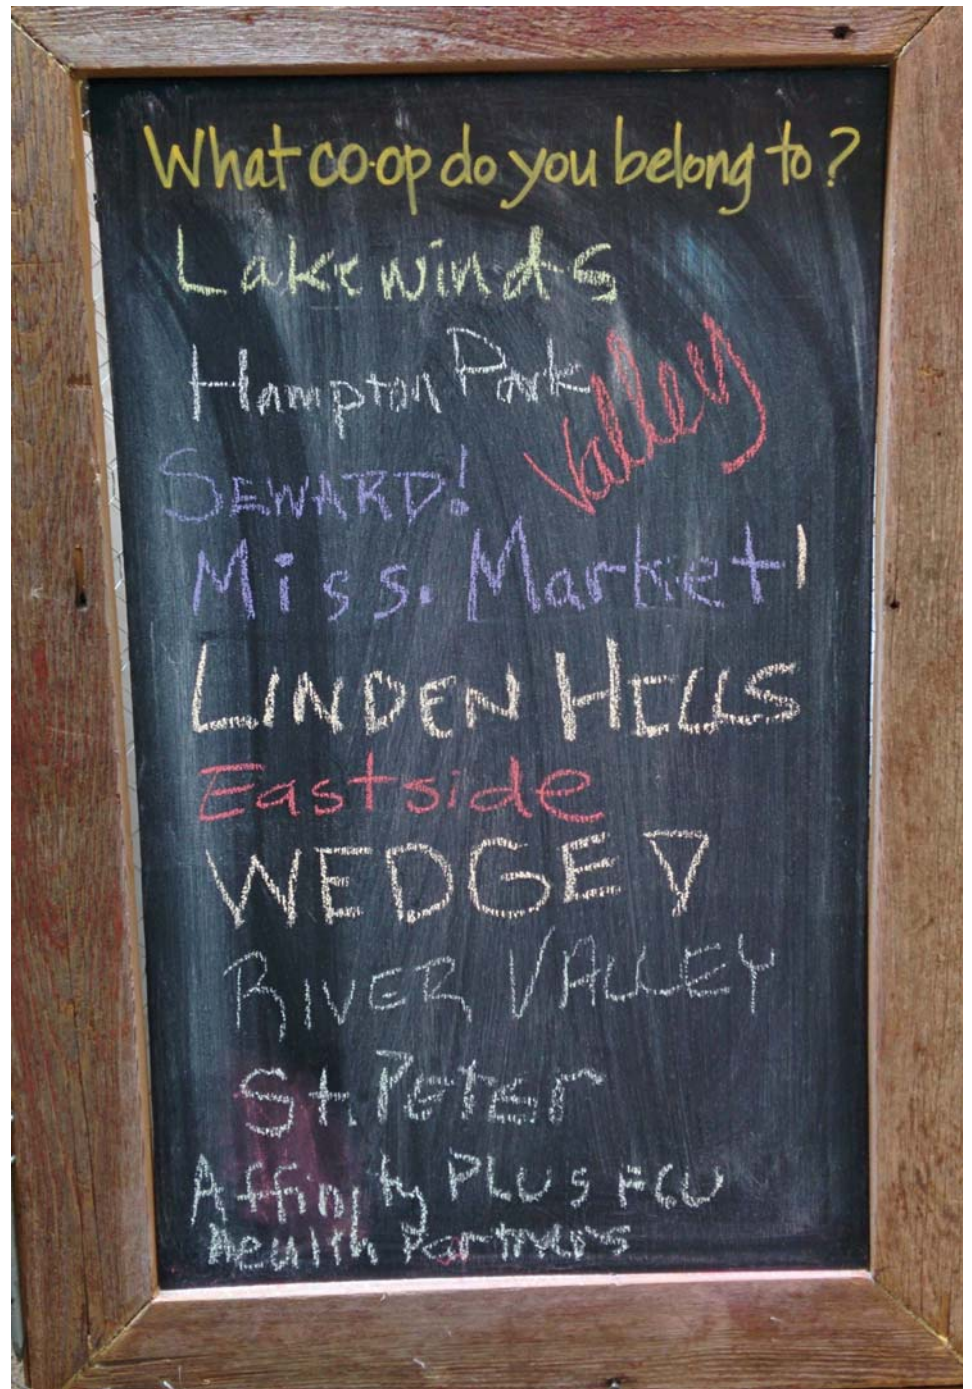 What co-op do you belong to?
Lakewinds
Hampton Park
Valley
SEWARD!
Miss. Market!
LINDEN HILLS
Eastside
WEDGE
RIVER VALLEY
St. Peter
Affinity PLUS FCU
Health Partners